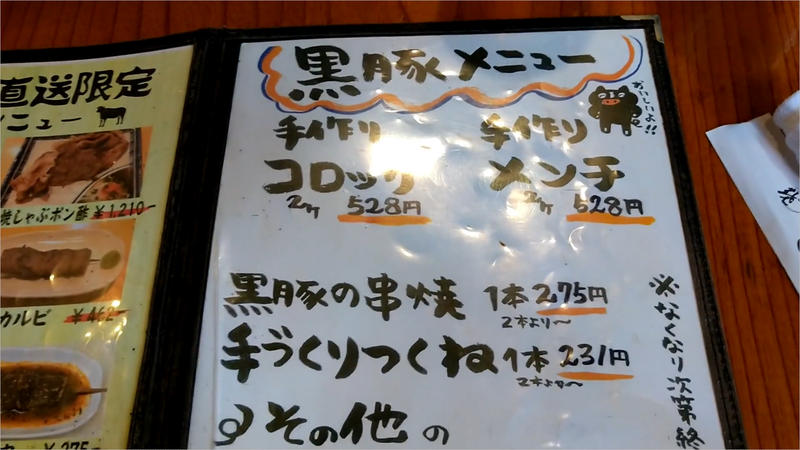 直送限定
ニュー
焼しゃぶポン酢 ¥1,210-
カルビ ¥462-
¥275-
黒豚メニュー
おいしいよ!!
手作り
コロッケ
2ヶ 528円
手作り
メンチ
2ヶ 528円
黒豚の串焼 1本 275円
2本より〜
手づくりつくね 1本 231円
2本より〜
その他の
※なくなり次第終